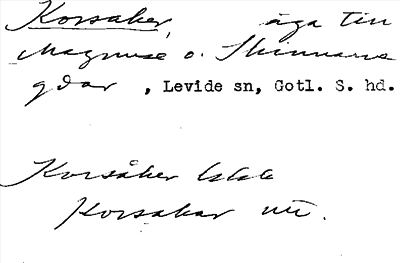 Korsaker, äga till
Magnuse o. Skinnarve
gdar, Levide sn, Gotl. S. hd.
Korsåker
Korsakar